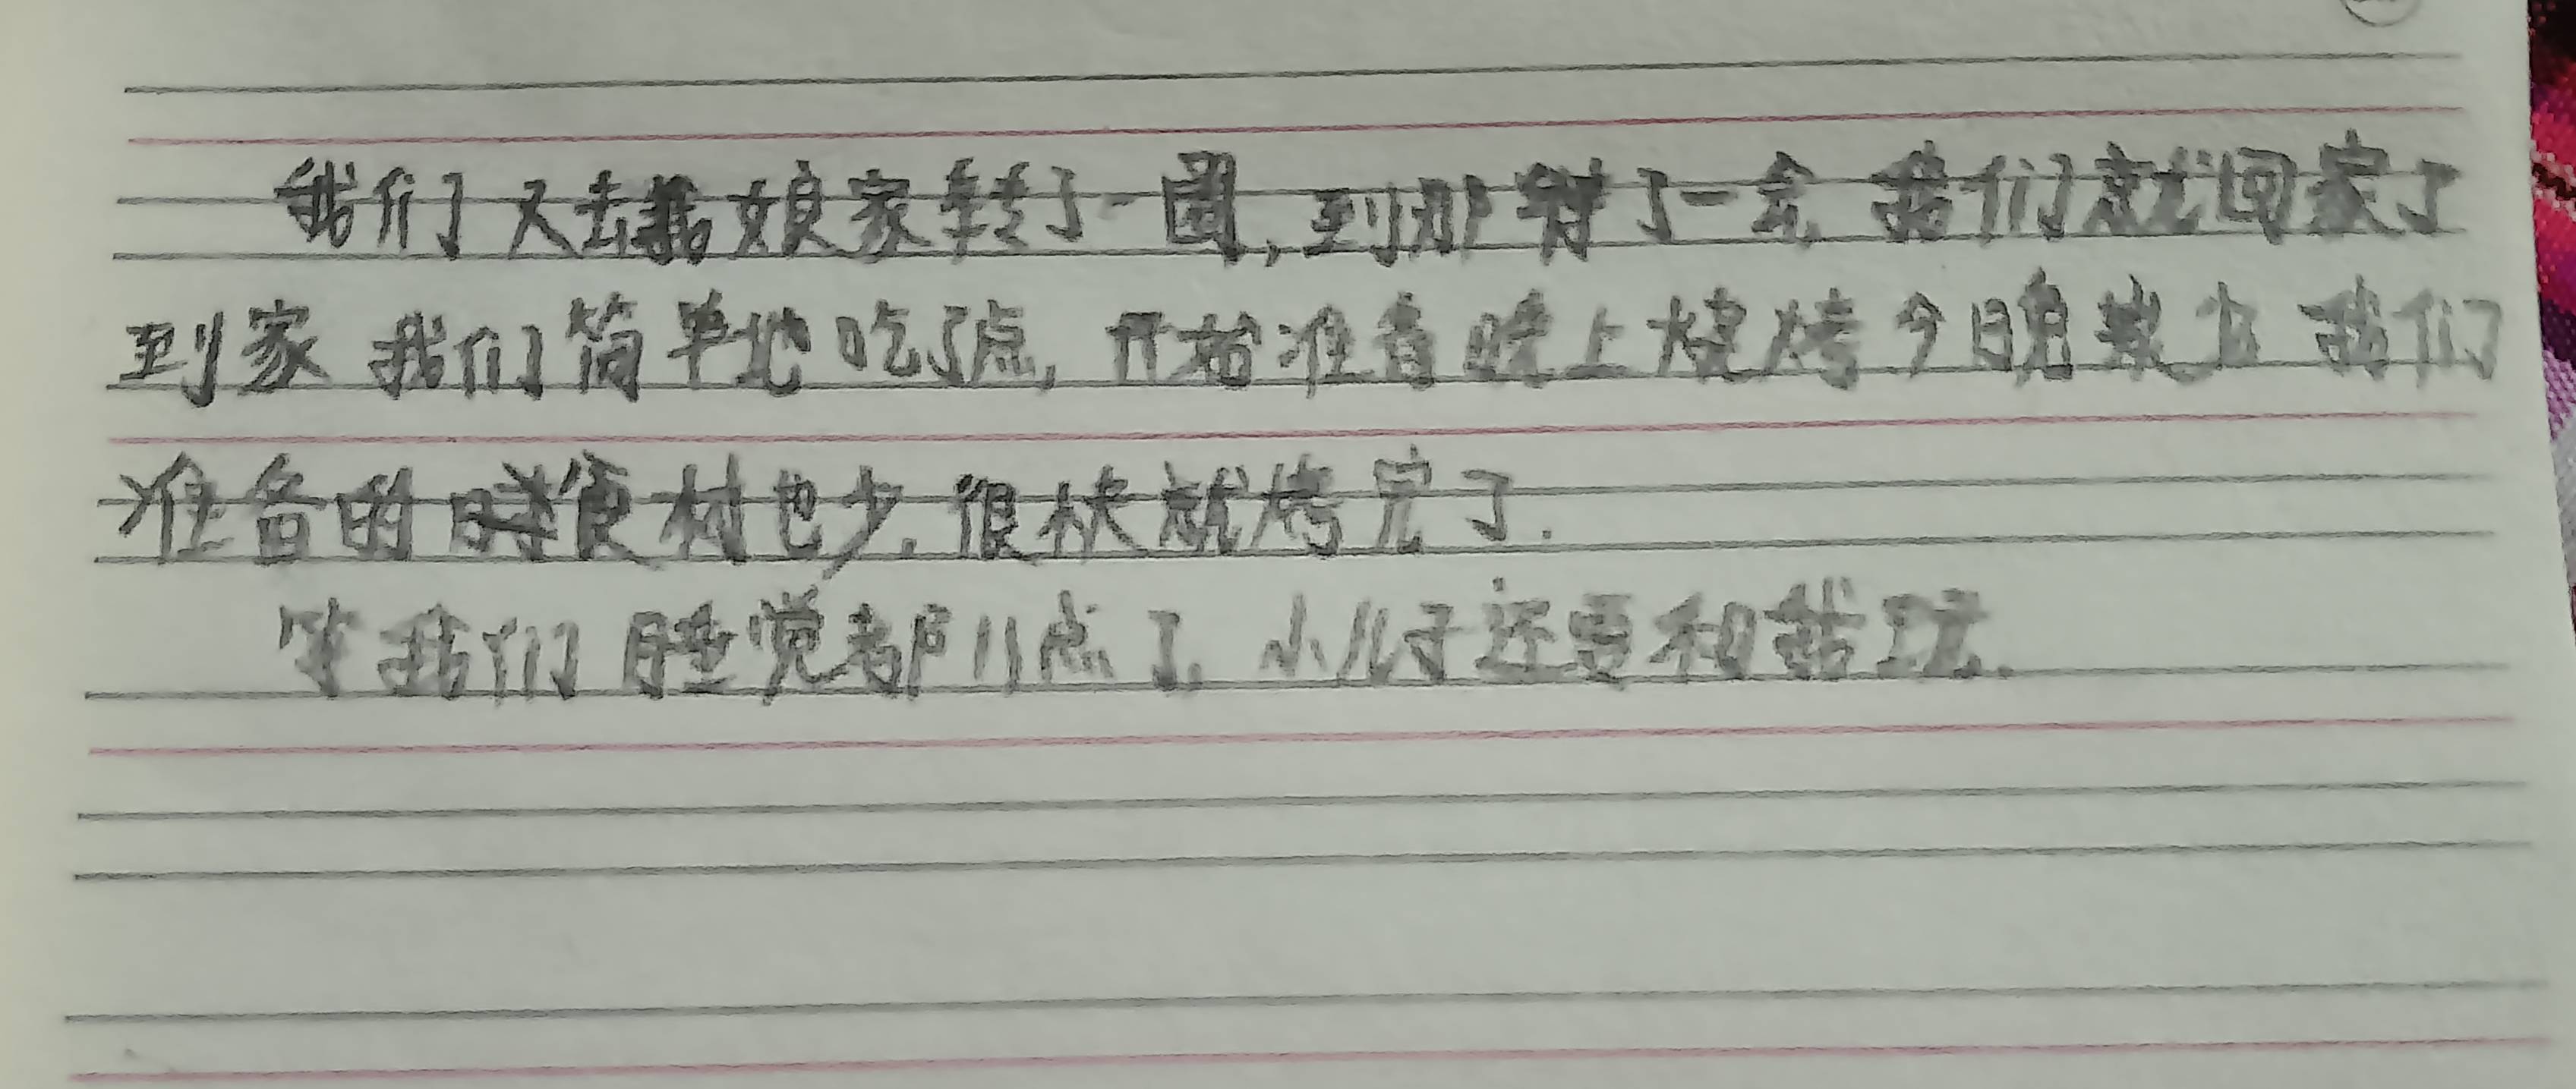 我们又去我娘家转了一圈,到那待了一会,我们就回家了
到家我们简单地吃了点,开始准备晚上烧烤.今晚 我们
准备的食材也少.很快就烤完了.
等我们睡觉都11点了.小儿子还要和我玩.